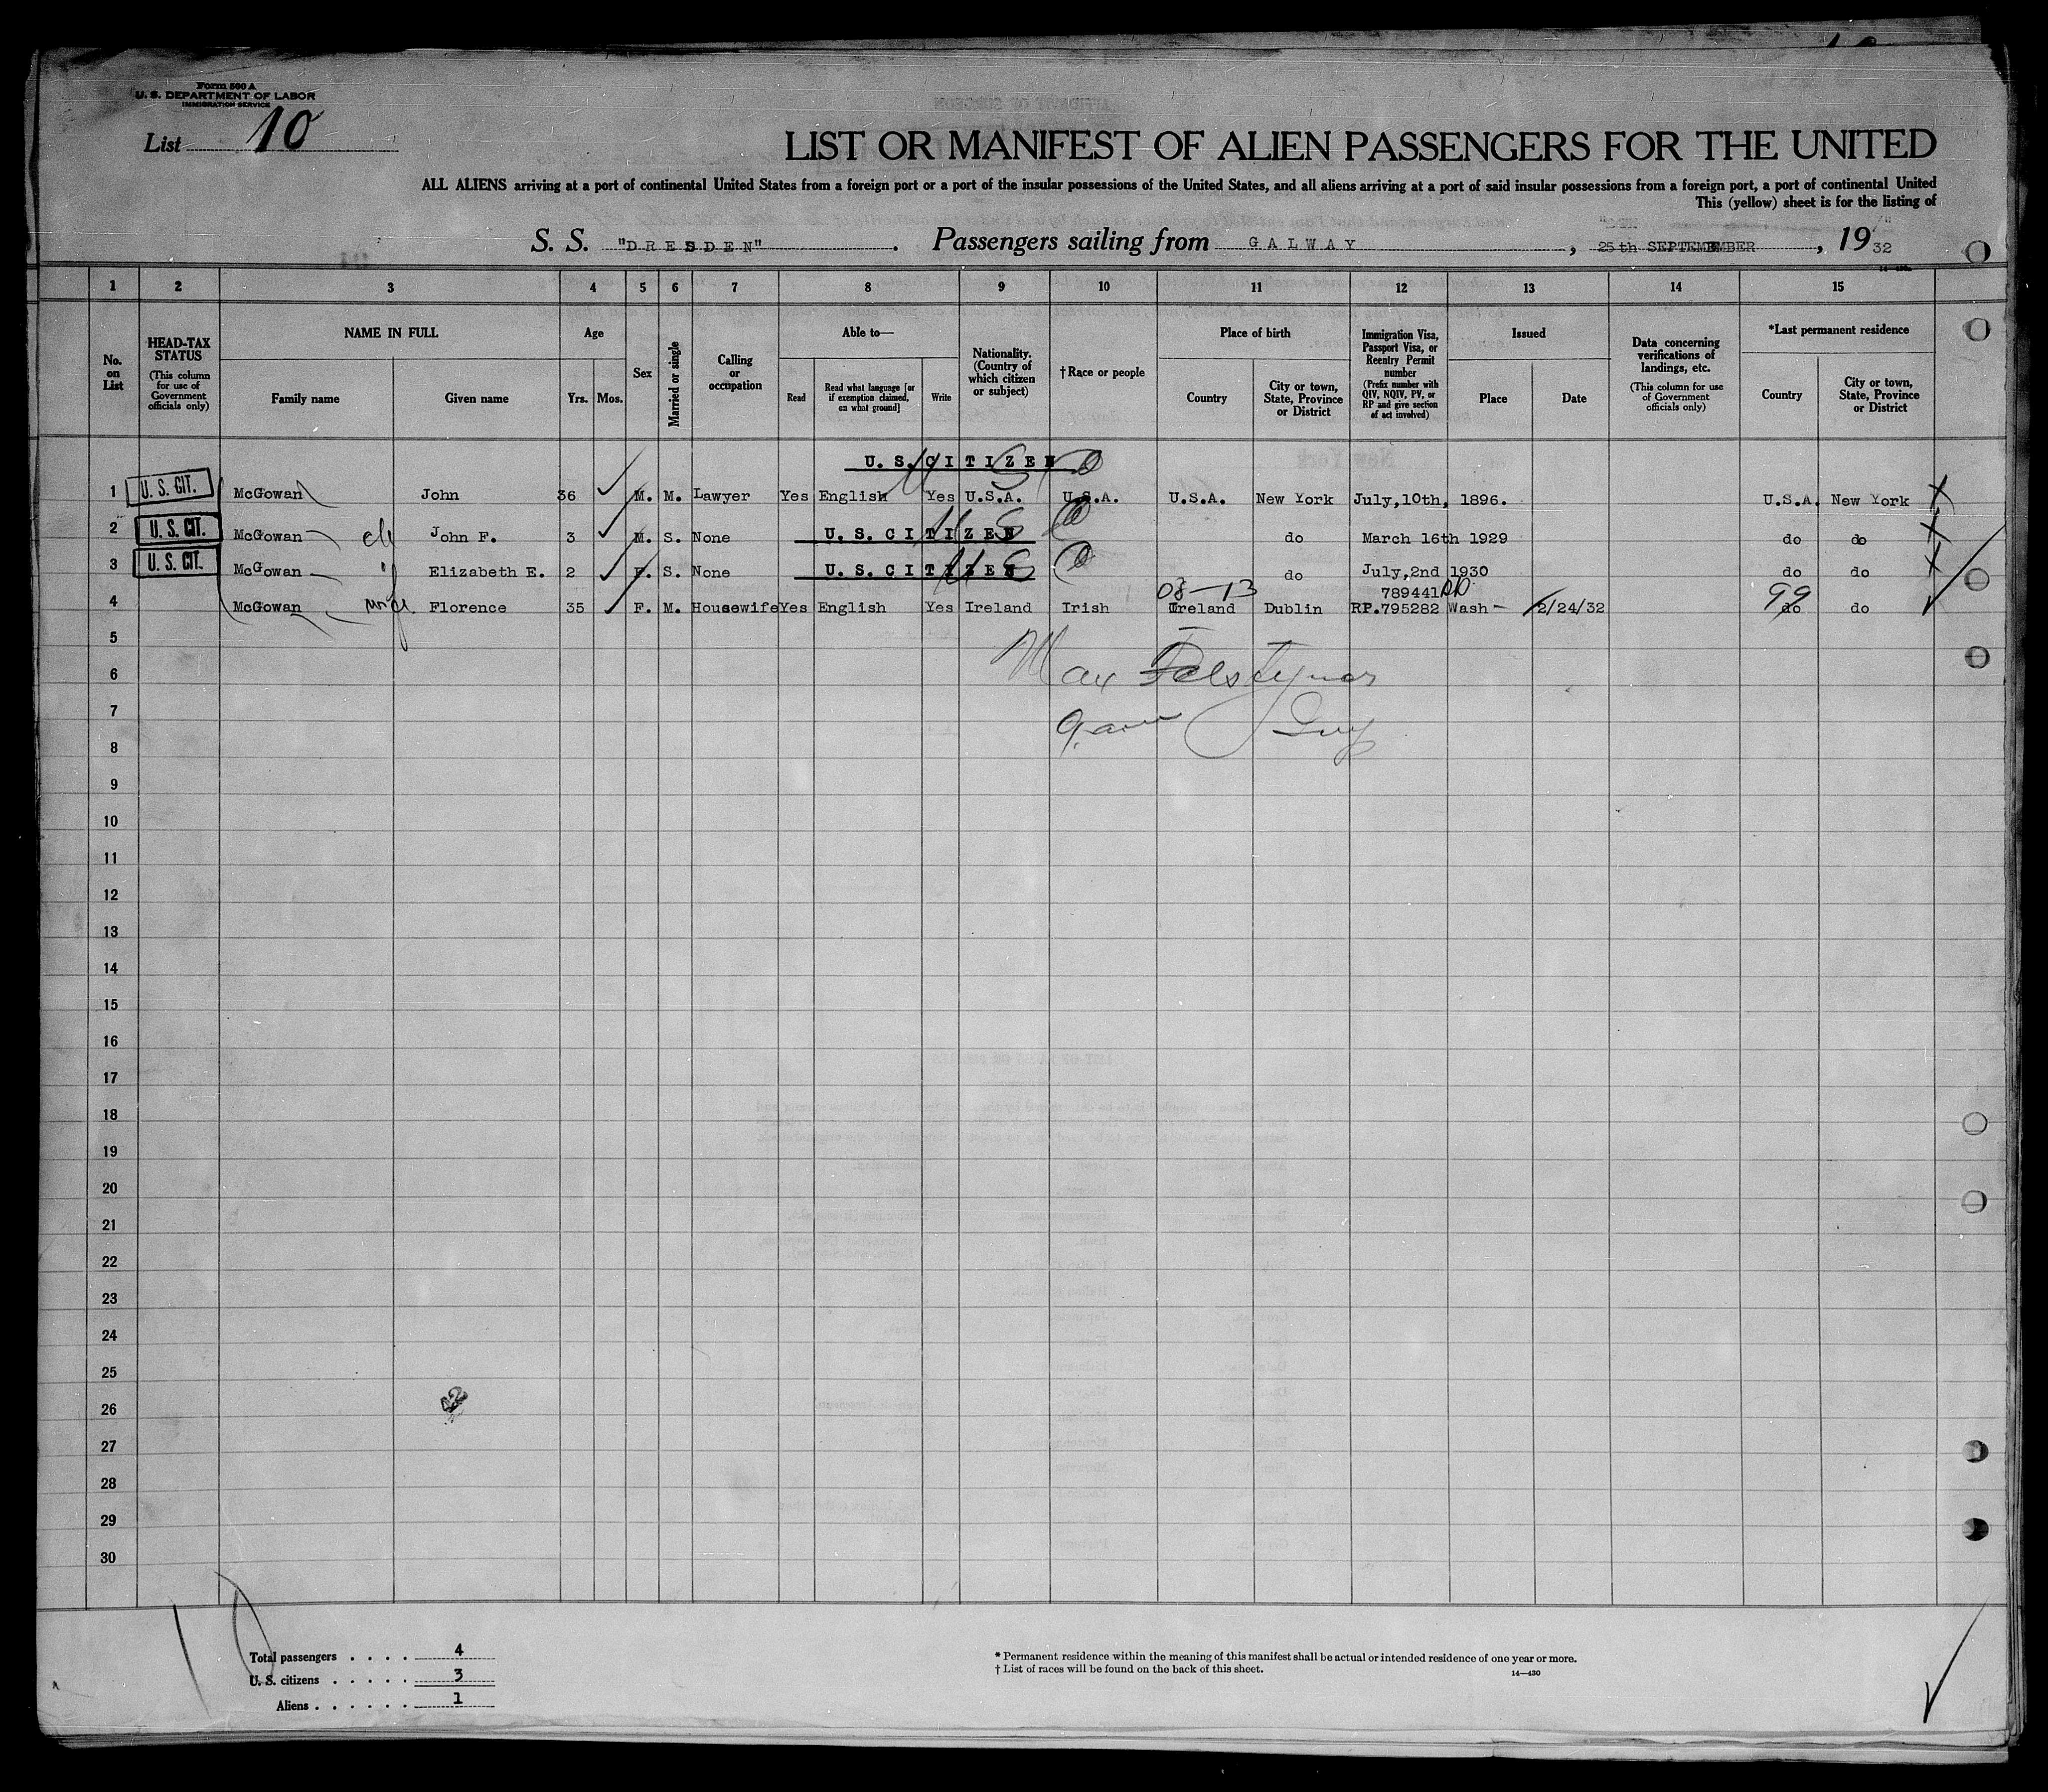 Form 500 A
U. S. DEPARTMENT OF LABOR
IMMIGRATION SERVICE
List 10
LIST OR MANIFEST OF ALIEN PASSENGERS FOR THE UNITED
ALL ALIENS arriving at a port of continental United States from a foreign port or a port of the insular possessions of the United States, and all aliens arriving at a port of said insular possessions from a foreign port, a port of continental United
This (yellow) sheet is for the listing of
S. S. "DRESDEN". Passengers sailing from GALWAY, 25th SEPTEMBER, 1932
1 2 3 4 5 6 7 8 9 10 11 12 13 14 15
No. on List
HEAD-TAX STATUS
(This column for use of Government officials only)
NAME IN FULL
Family name
Given name
Age
Yrs. Mos.
Sex
Married or single
Calling or occupation
Able to—
Read
Read what language [or if exemption claimed, on what ground]
Write
Nationality. (Country of which citizen or subject)
† Race or people
Place of birth
Country
City or town, State, Province or District
Immigration Visa, Passport Visa, or Reentry Permit number
(Prefix number with QIV, NQIV, PV, or RP and give section of act involved)
Issued
Place
Date
Data concerning verifications of landings, etc.
(This column for use of Government officials only)
*Last permanent residence
Country
City or town, State, Province or District
U. S. CITIZEN
1 U. S. CIT. McGowan John 36 M. M. Lawyer Yes English Yes U.S.A. U.S.A. U.S.A. New York July,10th, 1896. U.S.A. New York
2 U. S. CIT. McGowan John F. 3 M. S. None U. S. CITIZEN do March 16th 1929 do do
3 U. S. CIT. McGowan Elizabeth E. 2 F. S. None U. S. CITIZEN do July,2nd 1930 do do
08-13 789441 99
4 McGowan wife Florence 35 F. M. Housewife Yes English Yes Ireland Irish Ireland Dublin RP.795282 Wash- 2/24/32 do do
5
Max
6
7
8
9
10
11
12
13
14
15
16
17
18
19
20
21
22
23
24
25
26
27
28
29
30
Total passengers . . . . 4
U. S. citizens . . . . . . 3
Aliens . . . . . . 1
* Permanent residence within the meaning of this manifest shall be actual or intended residence of one year or more.
† List of races will be found on the back of this sheet.
14—430